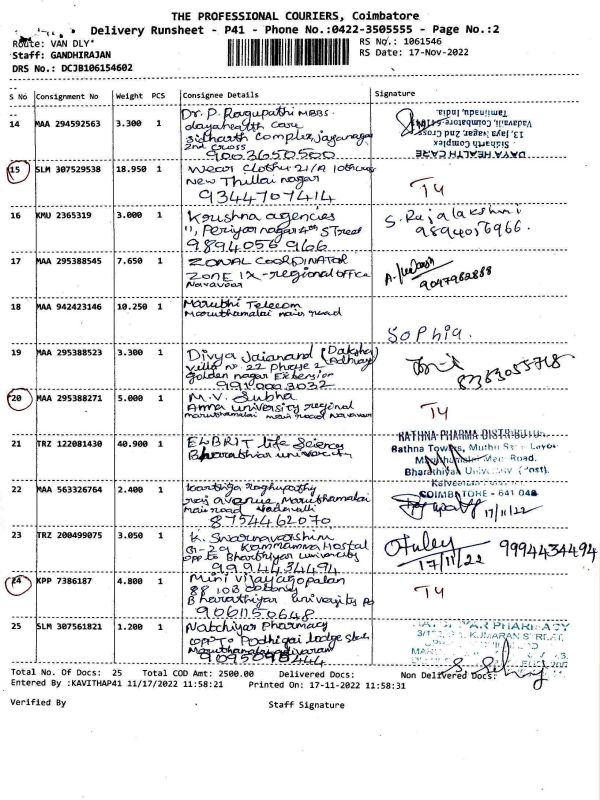 THE PROFESSIONAL COURIERS, Coimbatore
Delivery Runsheet - P41 - Phone No.:0422-3505555 - Page No.:2
Route: VAN DLY* RS No.: 1061546
Staff: GANDHIRAJAN RS Date: 17-Nov-2022
DRS No.: DCJB106154602
S No Consignment No Weight PCS Consignee Details Signature
14 MAA 294592563 3.300 1 Dr. P. Ragupathi MBBS.
dayahealth care
sidharth complex, jayanagar
2nd cross
9003650500
DAYA HEALTH CARE
Sidharth Complex
13, Jaya Nagar 2nd Cross
Vadavalli, Coimbatore-641041
Tamilnadu, India.
15 SLM 307529538 18.950 1 Wear Clothu 21/A 10th cross
New Thillai nagar
9344707414
T4
16 KMU 2365319 3.000 1 Krushna agencies
11, Periyar nagar 4th Street
9894056966
S. Rajalakshmi
9894056966.
17 MAA 295388545 7.650 1 ZONAL COORDINATOR
ZONE IX - regional office
Navavoor
9047962888
18 MAA 942423146 10.250 1 Maruthi Telecom
Maruthamalai main road
Sophia.
19 MAA 295388523 3.300 1 Divya Jaianand (Daksha Adhiray)
villa no. 22 phase 2
Golden nagar Extension
9910003032
20 MAA 295388271 5.000 1 M.V. Subha
Anna university regional
maruthamalai main road Navavoor
T4
21 TRZ 122081430 40.900 1 ELBRIT life Scienc
Bharathiar university
RATHNA PHARMA DISTRIBUTOR
Rathna Towers, Muthu
Maruthamalai Main Road.
Bharathiar University (Post).
COIMBATORE - 641 046
22 MAA 563326764 2.400 1 Kaarthiga raghupathy
raj avanue, Maruthamalai
main road Vadavalli
8754462070
17/11/22
23 TRZ 200499075 3.050 1 K. Swarnavarshini
G-29 Kammanna Hostal
opp to Bharthiyar university
9994434494
17/11/22 9994434494
24 KPP 7386187 4.800 1 Mini Vijayagopalan
88 10B colony
Bharathiyar University Po
9061150648
T4
25 SLM 307561821 1.200 1 Natchiyar Pharmacy
opp to Podhigai lodge
Maruthamalai adivaram
9095095444
PHARMACY
KUMARAN STREET,
Total No. Of Docs: 25 Total COD Amt: 2500.00 Delivered Docs: Non Delivered Docs:
Entered By :KAVITHAP41 11/17/2022 11:58:21 Printed On: 17-11-2022 11:58:31
Verified By Staff Signature